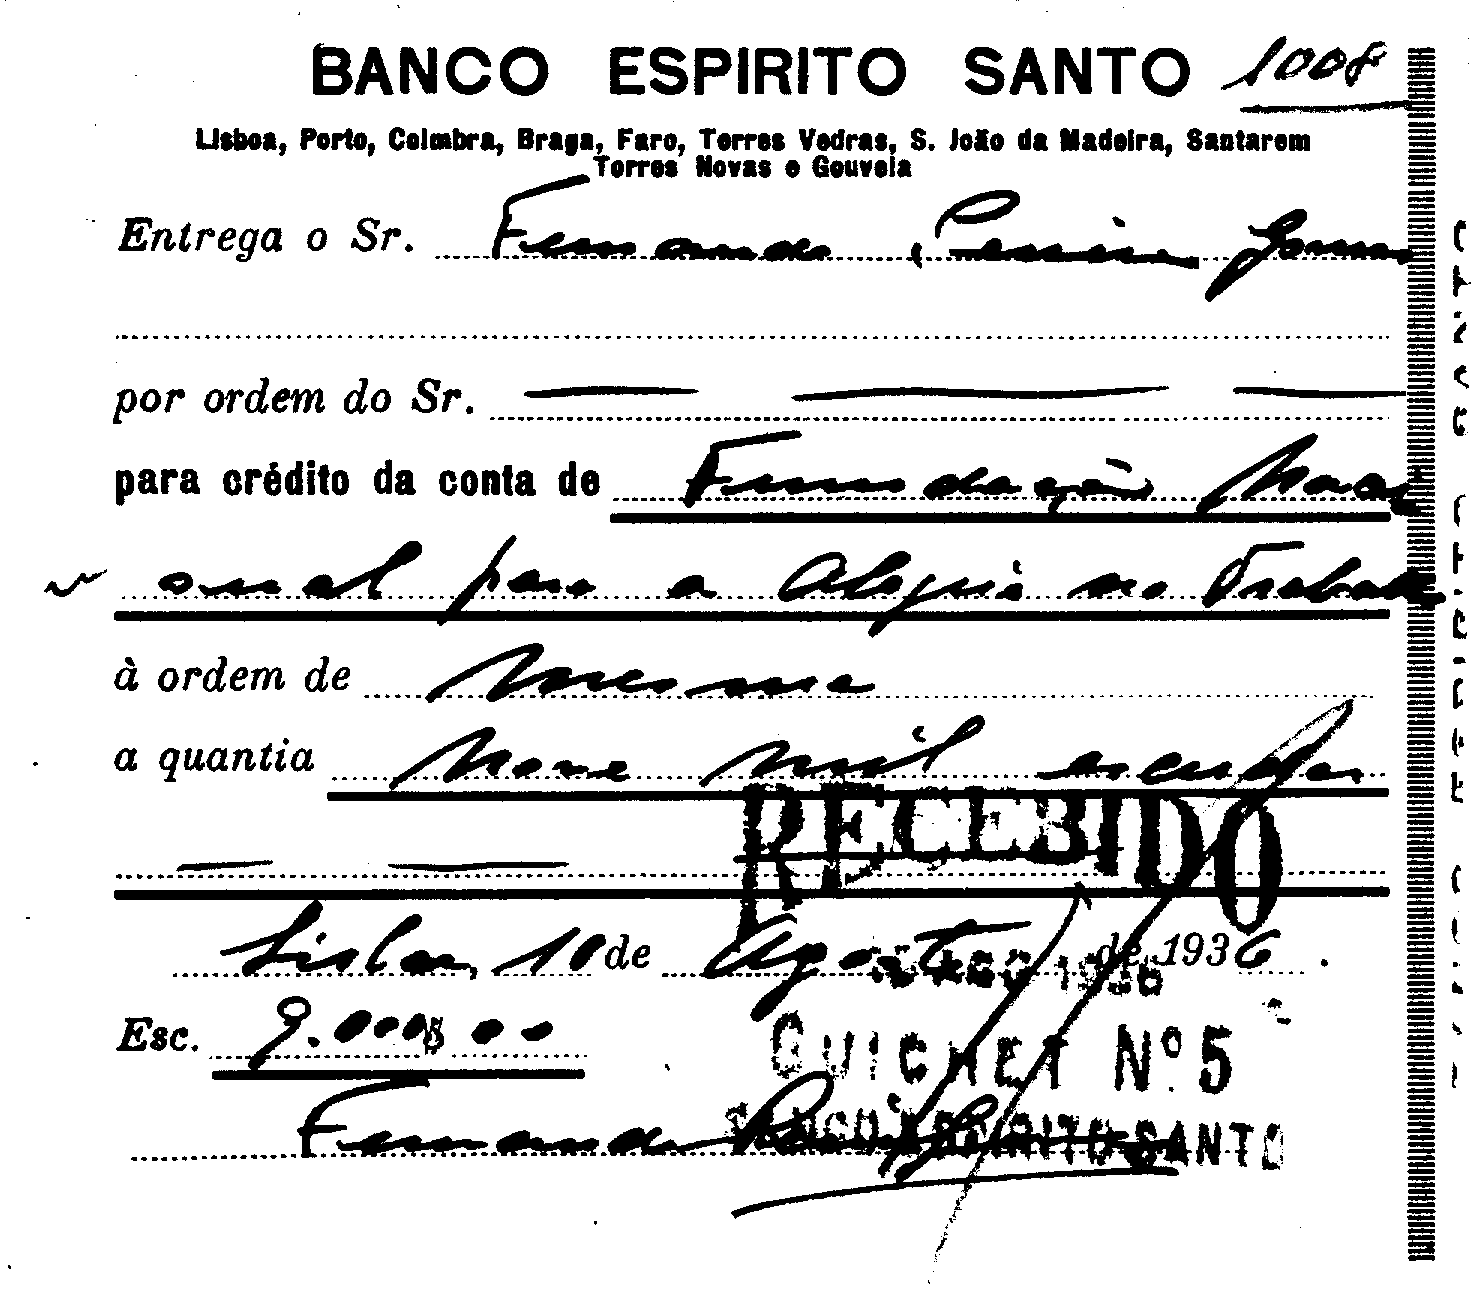 BANCO ESPIRITO SANTO 1008
Lisboa, Porto, Coimbra, Braga, Faro, Torres Vedras, S. João da Madeira, Santarem
Torres Novas e Gouveia
Entrega o Sr. Fernando Pereira Gomes
por ordem do Sr. — — —
para crédito da conta de Fundação Naci
onal para a Alegria no Trabalho
à ordem de Mesma
a quantia Nove mil escudos
— —
RECEBIDO
Lisboa, 10 de Agosto de 1936.
10 AGO 1936
Esc. 9.000$00
GUICHET Nº 5
BANCO ESPIRITO SANTO
Fernando Pereira Gomes